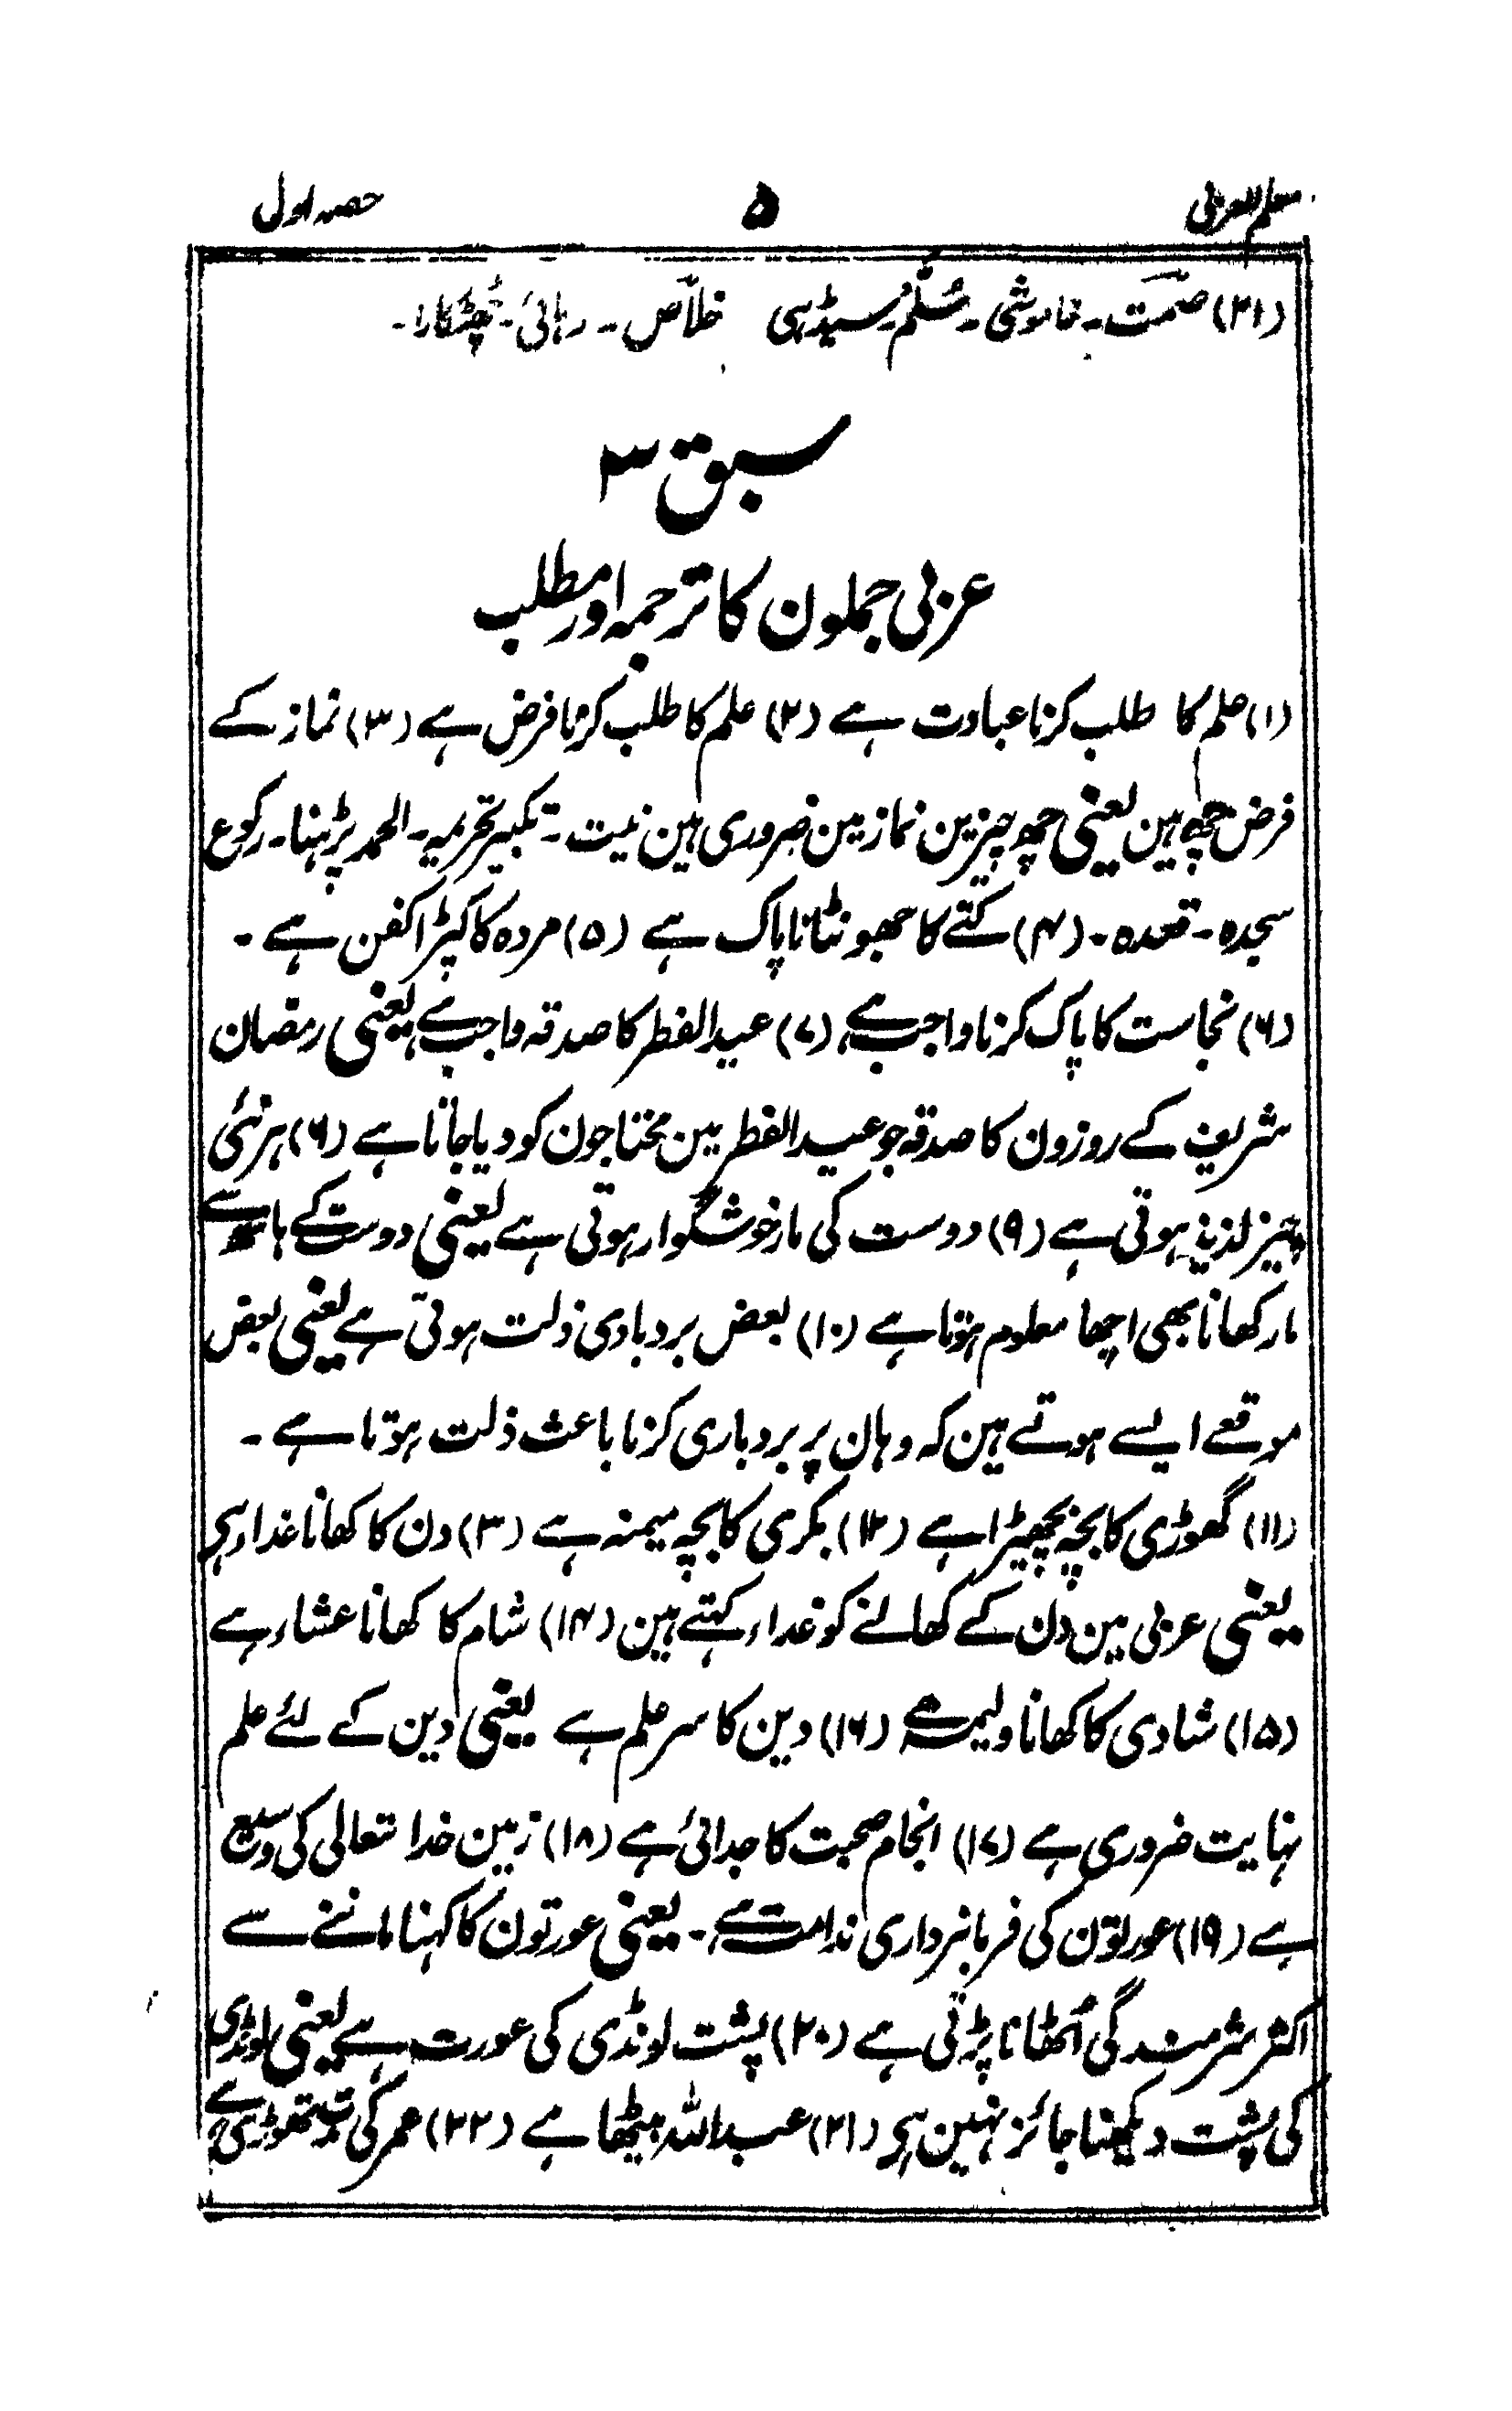 معلم العربی ۵ حصہ اول
(۳۱) صمت۔ خاموشی۔ سُلَّم۔ سیڈہی خلاص۔ رہائی۔ چُھٹکارا۔
سبق ۳
عربی جملون کا ترجمہ اور مطلب
(۱) علم کا طلب کرنا عبادت ہے (۲) علم کا طلب کرنا فرض ہے (۳) نماز کے
فرض چھ ہین یعنی چھ چیزین نماز مین ضروری ہین نیت۔ تکبیر تحریمہ۔ الحمد پڑہنا۔ رکوع
سجدہ۔ قعدہ۔ (۴) کتے کا جھونٹا ناپاک ہے (۵) مردہ کا کپڑا کفن ہے۔
(۶) نجاست کا پاک کرنا واجب ہے (۷) عیدالفطر کا صدقہ واجب ہے یعنی رمضان
شریف کے روزون کا صدقہ جو عیدالفطر مین محتاجون کو دیا جاتا ہے (۶) ہر نئی
چیز لذیذ ہوتی ہے (۹) دوست کی مار خوشگوار ہوتی ہے یعنی دوست کے ہاتھ سے
مار کھانا بھی اچھا معلوم ہوتا ہے (۱۰) بعض بردبادی ذلت ہوتی ہے یعنی بعض
موقعے ایسے ہوتے ہین کہ وہان پر بردباری کرنا باعث ذلت ہوتا ہے۔
(۱۱) گھوڑی کا بچہ بچھیڑا ہے (۱۲) بکری کا بچہ میمنہ ہے (۳) دن کا کھانا غداء ہی
یعنی عربی مین دن کے کھانے کو غداء کہتے ہین (۱۴) شام کا کھانا عشاء ہے
(۱۵) شادی کا کھانا ولیمہ ہے (۱۶) دین کا سر علم ہے یعنی دین کے لئے علم
نہایت ضروری ہے (۱۷) انجام صحبت کا جدائی ہے (۱۸) زمین خدا تعالی کی وسیع
ہے (۱۹) عورتون کی فرمانبرداری ندامت ہے۔ یعنی عورتون کا کہنا ماننے سے
اکثر شرمندگی اُٹھانا پڑتی ہے (۲۰) پشت لونڈی کی عورت ہے یعنی لونڈی
کی پشت دیکھنا جائز نہین ہی (۲۱) عبداللہ بیٹھا ہے (۲۲) عمر کی تھوڑی ہے